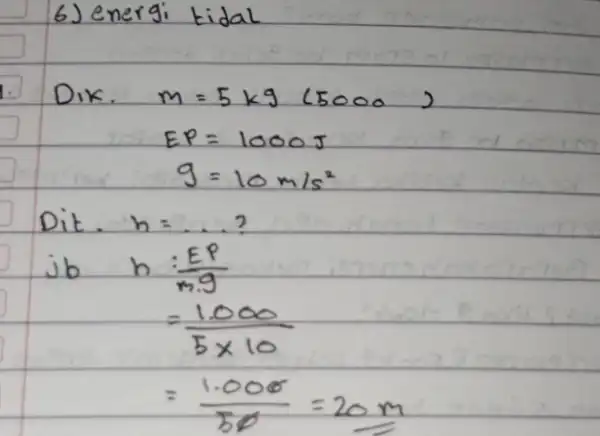 6) energi tidal
1. Dik. m = 5 kg (5000 )
EP = 1000 J
g = 10 m/s²
Dit. h = . . . ?
jb h : EP
m.g
= 1.000
5 x 10
= 1.000
50 = 20 m